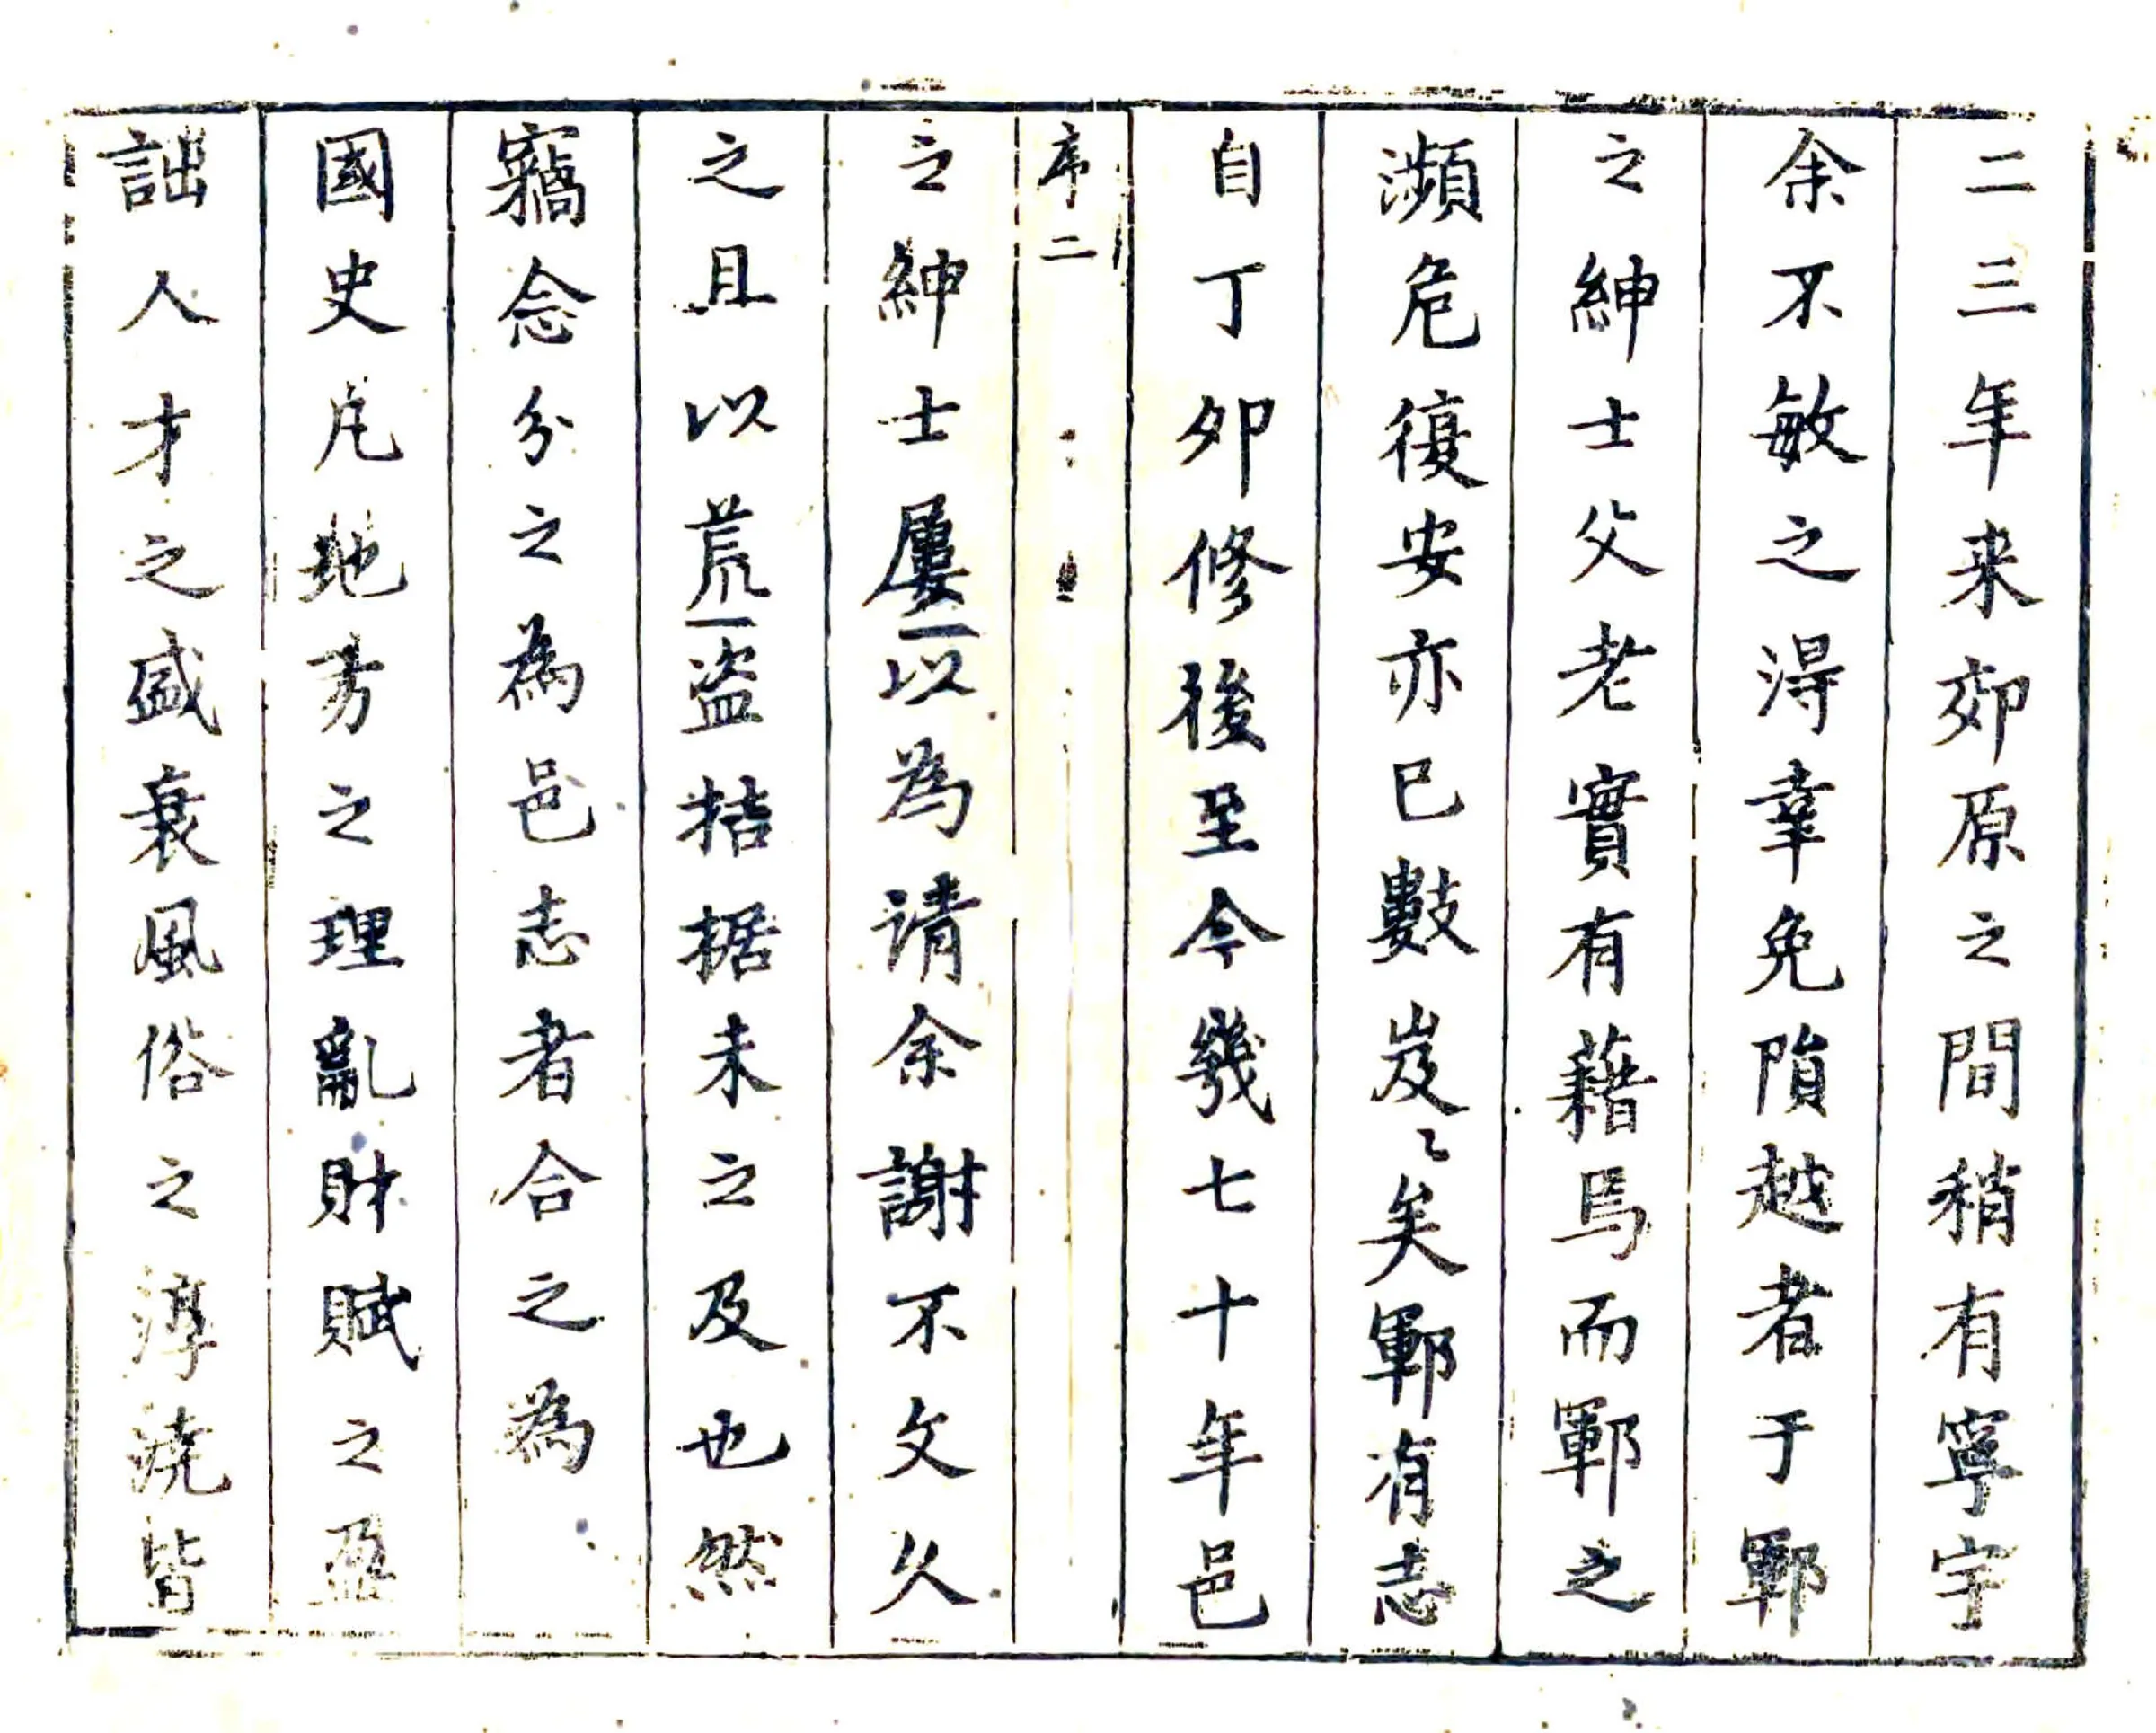 二三年来郊原之間稍有寧宇
余不敏之淂幸免隕越者于鄆
之紳士父老實有藉焉而鄆之
瀕危復安亦已數岌〻矣鄆有志
自丁卯修後至今幾七十年邑
序二
之紳士屢以為请余謝不文久
之且以荒盗拮据未之及也然
竊念分之為邑志者合之為
國史凡地方之理亂財賦之盈
詘人才之盛衰風俗之淳澆皆